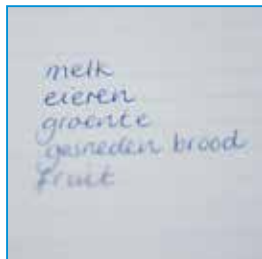 melk
eieren
groente
gesneden brood
fruit